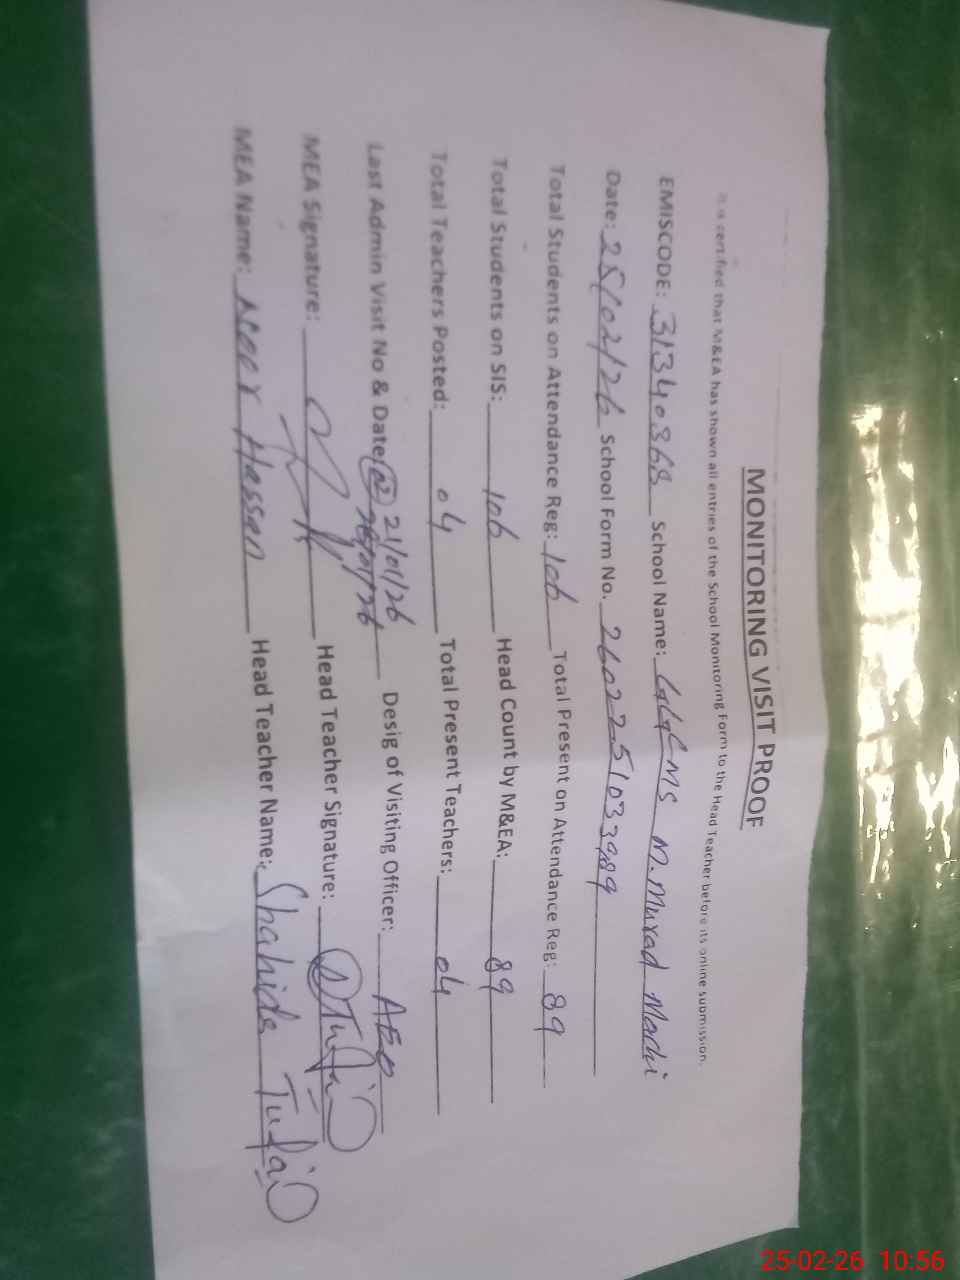 MONITORING VISIT PROOF
It is certified that M&EA has shown all entries of the School Monitoring Form to the Head Teacher before its online submission.
EMISCODE: 31340368 School Name: GGCMS M. Murad Machi
Date: 25/02/26 School Form No. 2602251033989
Total Students on Attendance Reg: 106 Total Present on Attendance Reg: 89
Total Students on SIS: 106 Head Count by M&EA: 89
Total Teachers Posted: 04 Total Present Teachers: 04
Last Admin Visit No & Date 02 21/01/26 Desig of Visiting Officer: AEO
MEA Signature: Head Teacher Signature: STufail
MEA Name: Hassan Head Teacher Name: Shahida Tufail
25-02-26 10:56